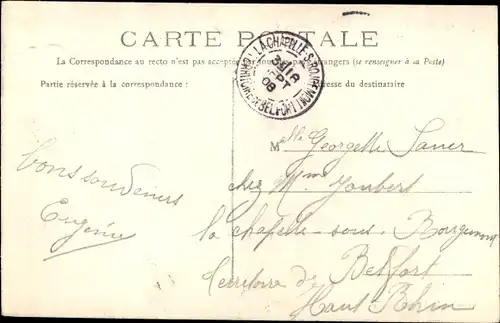 CARTE POSTALE
La Correspondance au recto n'est pas acceptée par tous les pays étrangers (se renseigner à sa Poste)
Partie réservée à la correspondance :
Adresse du destinataire
LACHAPELLE-S-ROUGEMONT
TERRITOIRE DE BELFORT
18
SEPT
08
Bons souvenirs
Eugénie
Mlle Georgette
chez Mme Joubert
la chapelle-sous-Rougemont
Territoire de Belfort
Haut Rhin